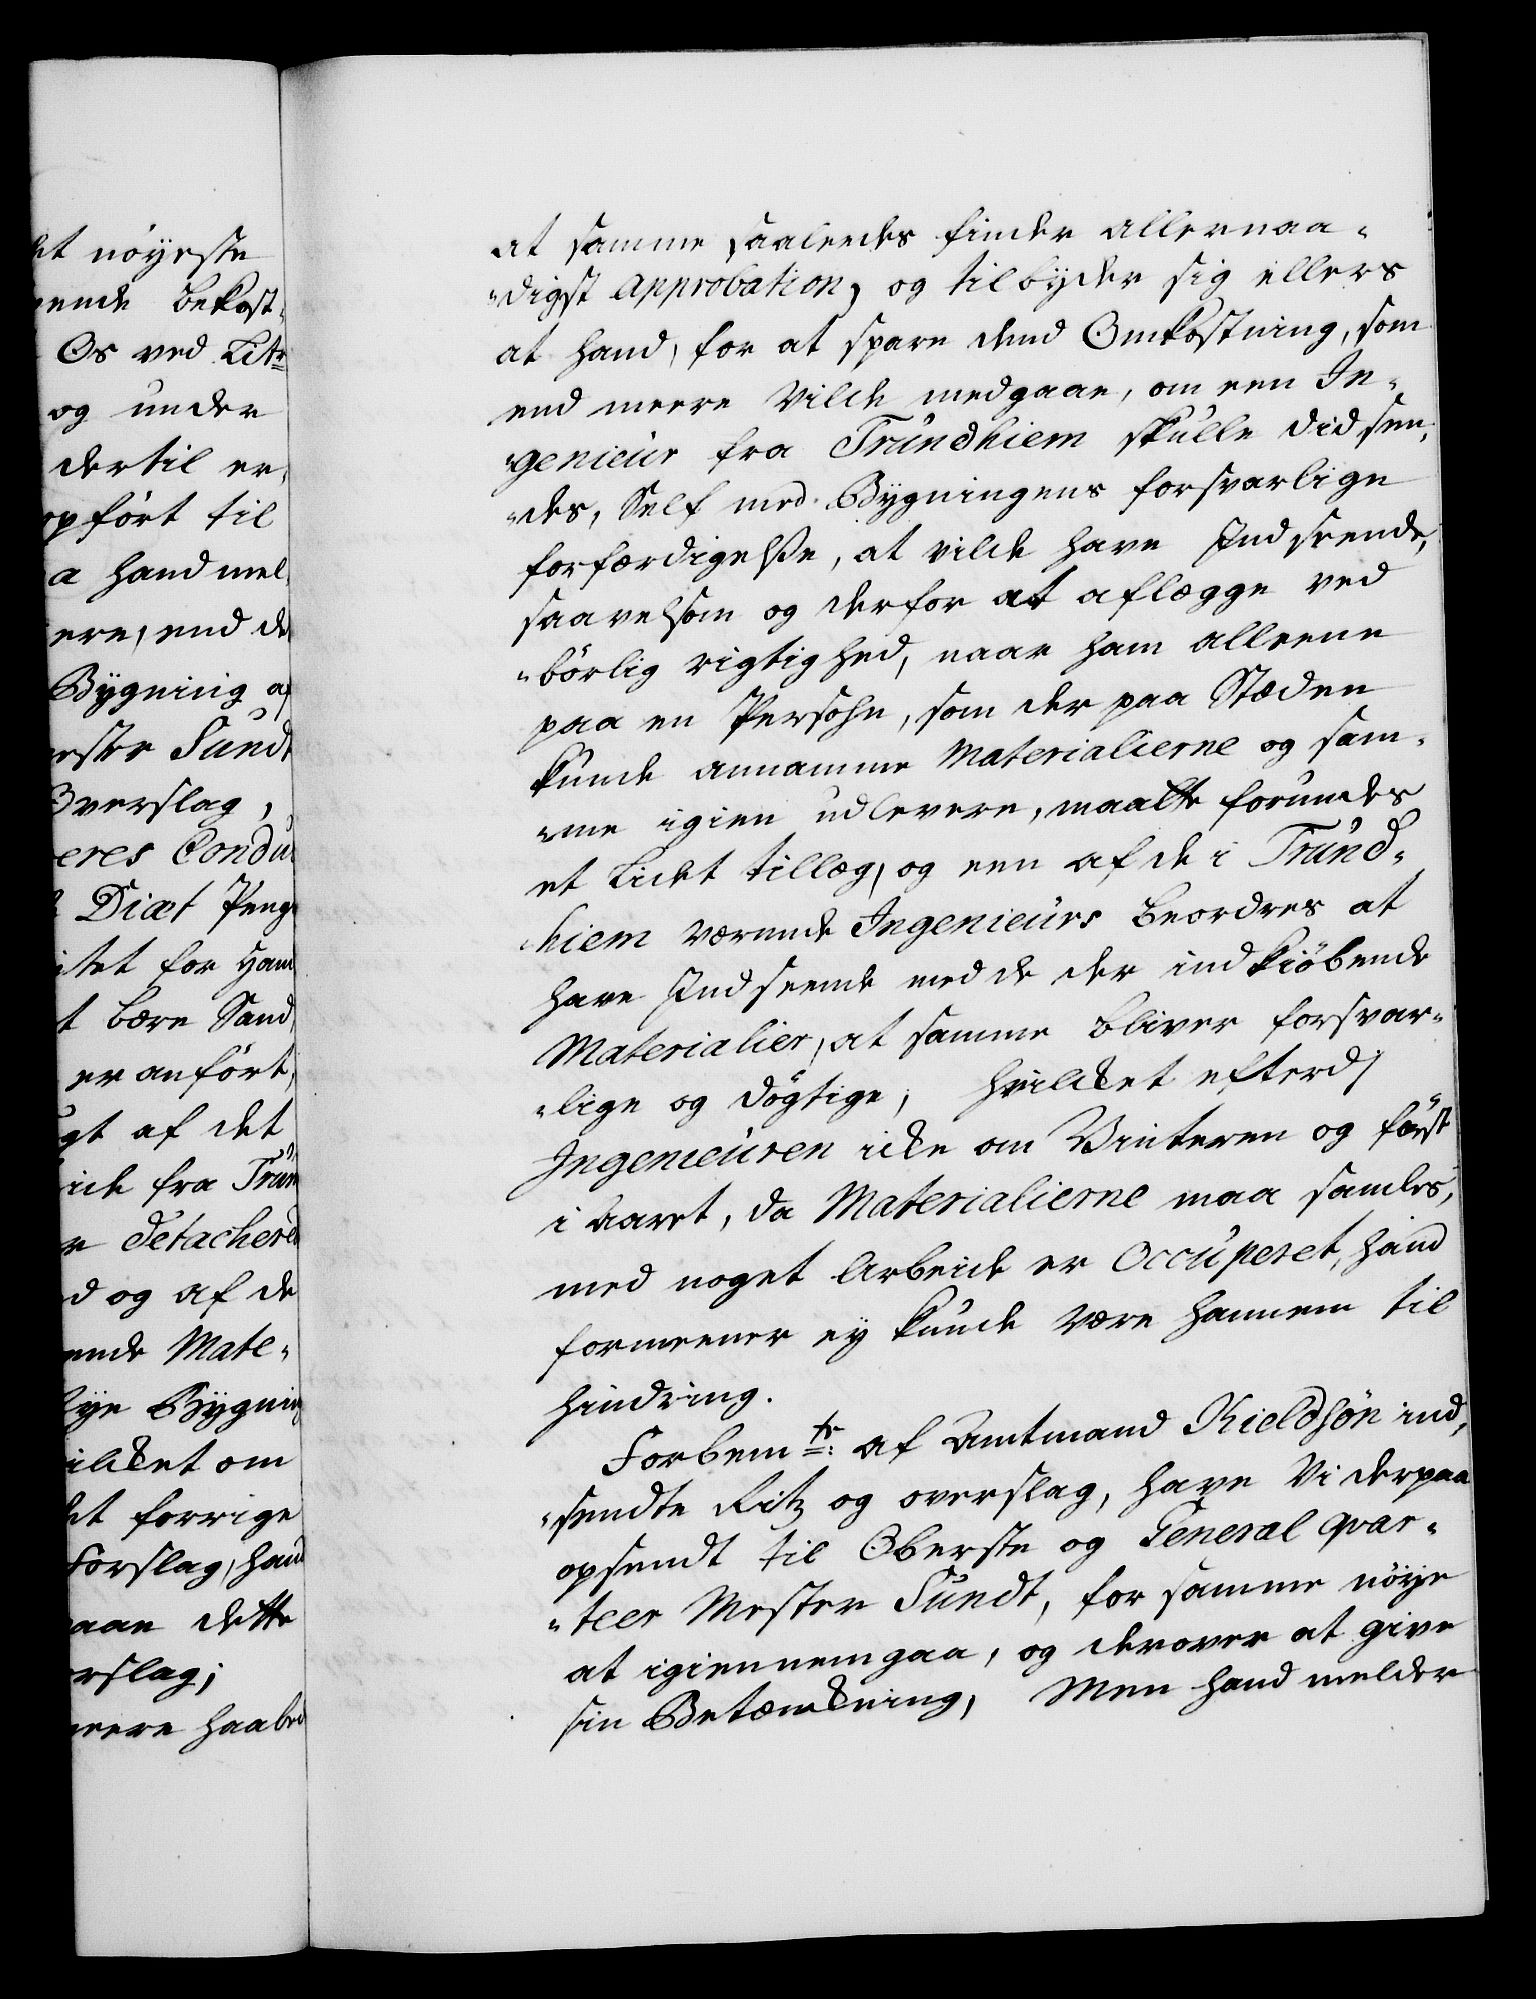 et nöyeste
ende bekost¬
Os ved Litr
og under
dertil er¬
opfört til
a hand mel
ere, end de
Bygning af
ester Sundt
Overslag,
eres Condu
Diæt Penge
itet for ham
t bære Sand
er anfört,
gt af det
ide fra Trun
r detachered
d og af de
ende Mate¬
Nye Bygning
ilket om
et forrige
Forslag, hand
aae dette
rslag;
eere haabed
at samme saaledes finder allernaa¬
digst approbation, og tilbyder sig ellers
at hand, for at spare dend Omkostning, som
end meere vilde medgaae, om een In¬
genieur fra Trundhiem skulle did sen¬
des, Self med Bygningens forsvarlige
forfærdigelsse, at vilde have Indseende,
saavelsom og derfor at aflægge ved
börlig rigtighed, naar ham alleene
paa en Persohn, som der paa Stæden
kunde annamme Materialierne og sam¬
me igien udlevere, maatte forundes
et lidet tillæg, og een af de i Trund¬
hiem værende Ingenieurs beordres at
have Indseende med de der indkiöbende
Materialier, at samme bliver forsvar¬
lige og dögtige, hvilcket efterdj
Ingenieuren icke om Vinteren og först
i Aaret, da Materialierne maa samles,
med noget Arbeide er Occuperet, hand
formeener ey kunde være hannem til
hindring.
Forbemte: af Amtmand Kieldsön ind¬
sendte Ritz og overslag, have Vi derpaa
opsendt til Oberste og General qvar¬
teer Mester Sundt, for samme nöye
at igiennemgaa, og derover at give
sin Betænckning, Men hand melder